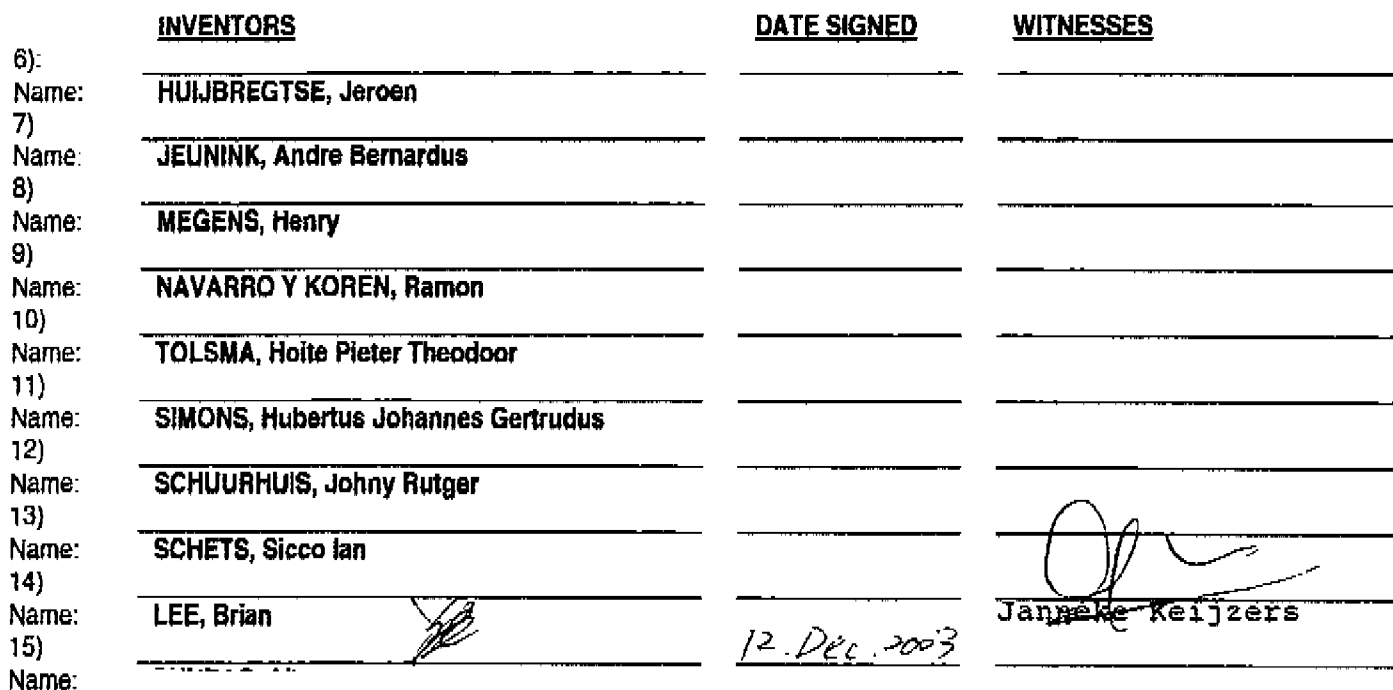 INVENTORS DATE SIGNED WITNESSES
6):
Name: HUIJBREGTSE, Jeroen
7)
Name: JEUNINK, Andre Bernardus
8)
Name: MEGENS, Henry
9)
Name: NAVARRO Y KOREN, Ramon
10)
Name: TOLSMA, Hoite Pieter Theodoor
11)
Name: SIMONS, Hubertus Johannes Gertrudus
12)
Name: SCHUURHUIS, Johny Rutger
13)
Name: SCHETS, Sicco Ian
14)
Name: LEE, Brian Janneke Keijzers
15) 12. Dec. 2003
Name: